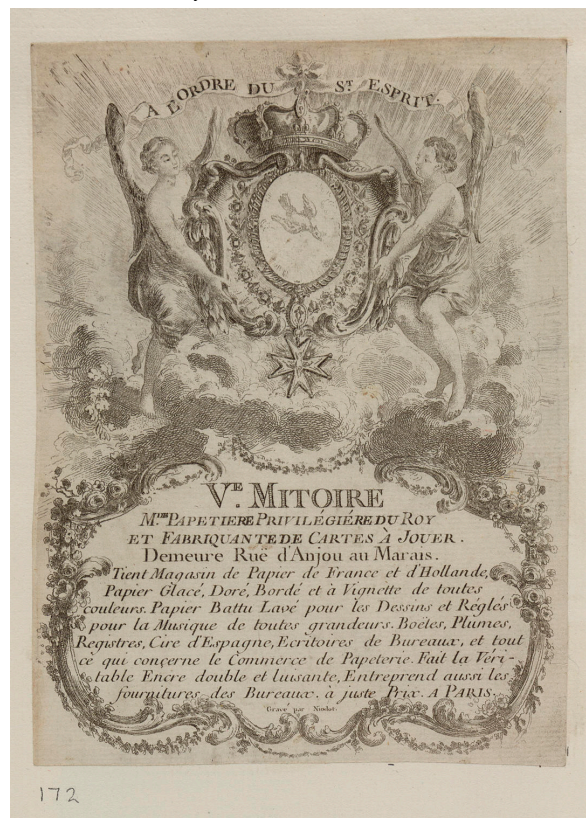 A L'ORDRE DU ST. ESPRIT.
VE. MITOIRE
Mde. PAPETIERE PRIVILÉGIÉRE DU ROY
ET FABRIQUANTE DE CARTES À JOUER.
Demeure Ruë d'Anjou au Marais.
Tient Magasin de Papier de France et d'Hollande,
Papier Glacé, Doré, Bordé et à Vignette de toutes
couleurs. Papier Battu Lavé pour les Dessins et Réglés
pour la Musique de toutes grandeurs. Boëtes, Plumes,
Registres, Cire d'Espagne, Ecritoires de Bureaux, et tout
cè qui conçerne le Commerce de Papeterie. Fait la Véri-
table Encre double et luisante, Entreprend aussi les
fournitures des Bureaux. à juste Prix. A PARIS.
Gravé par Niodot.
172